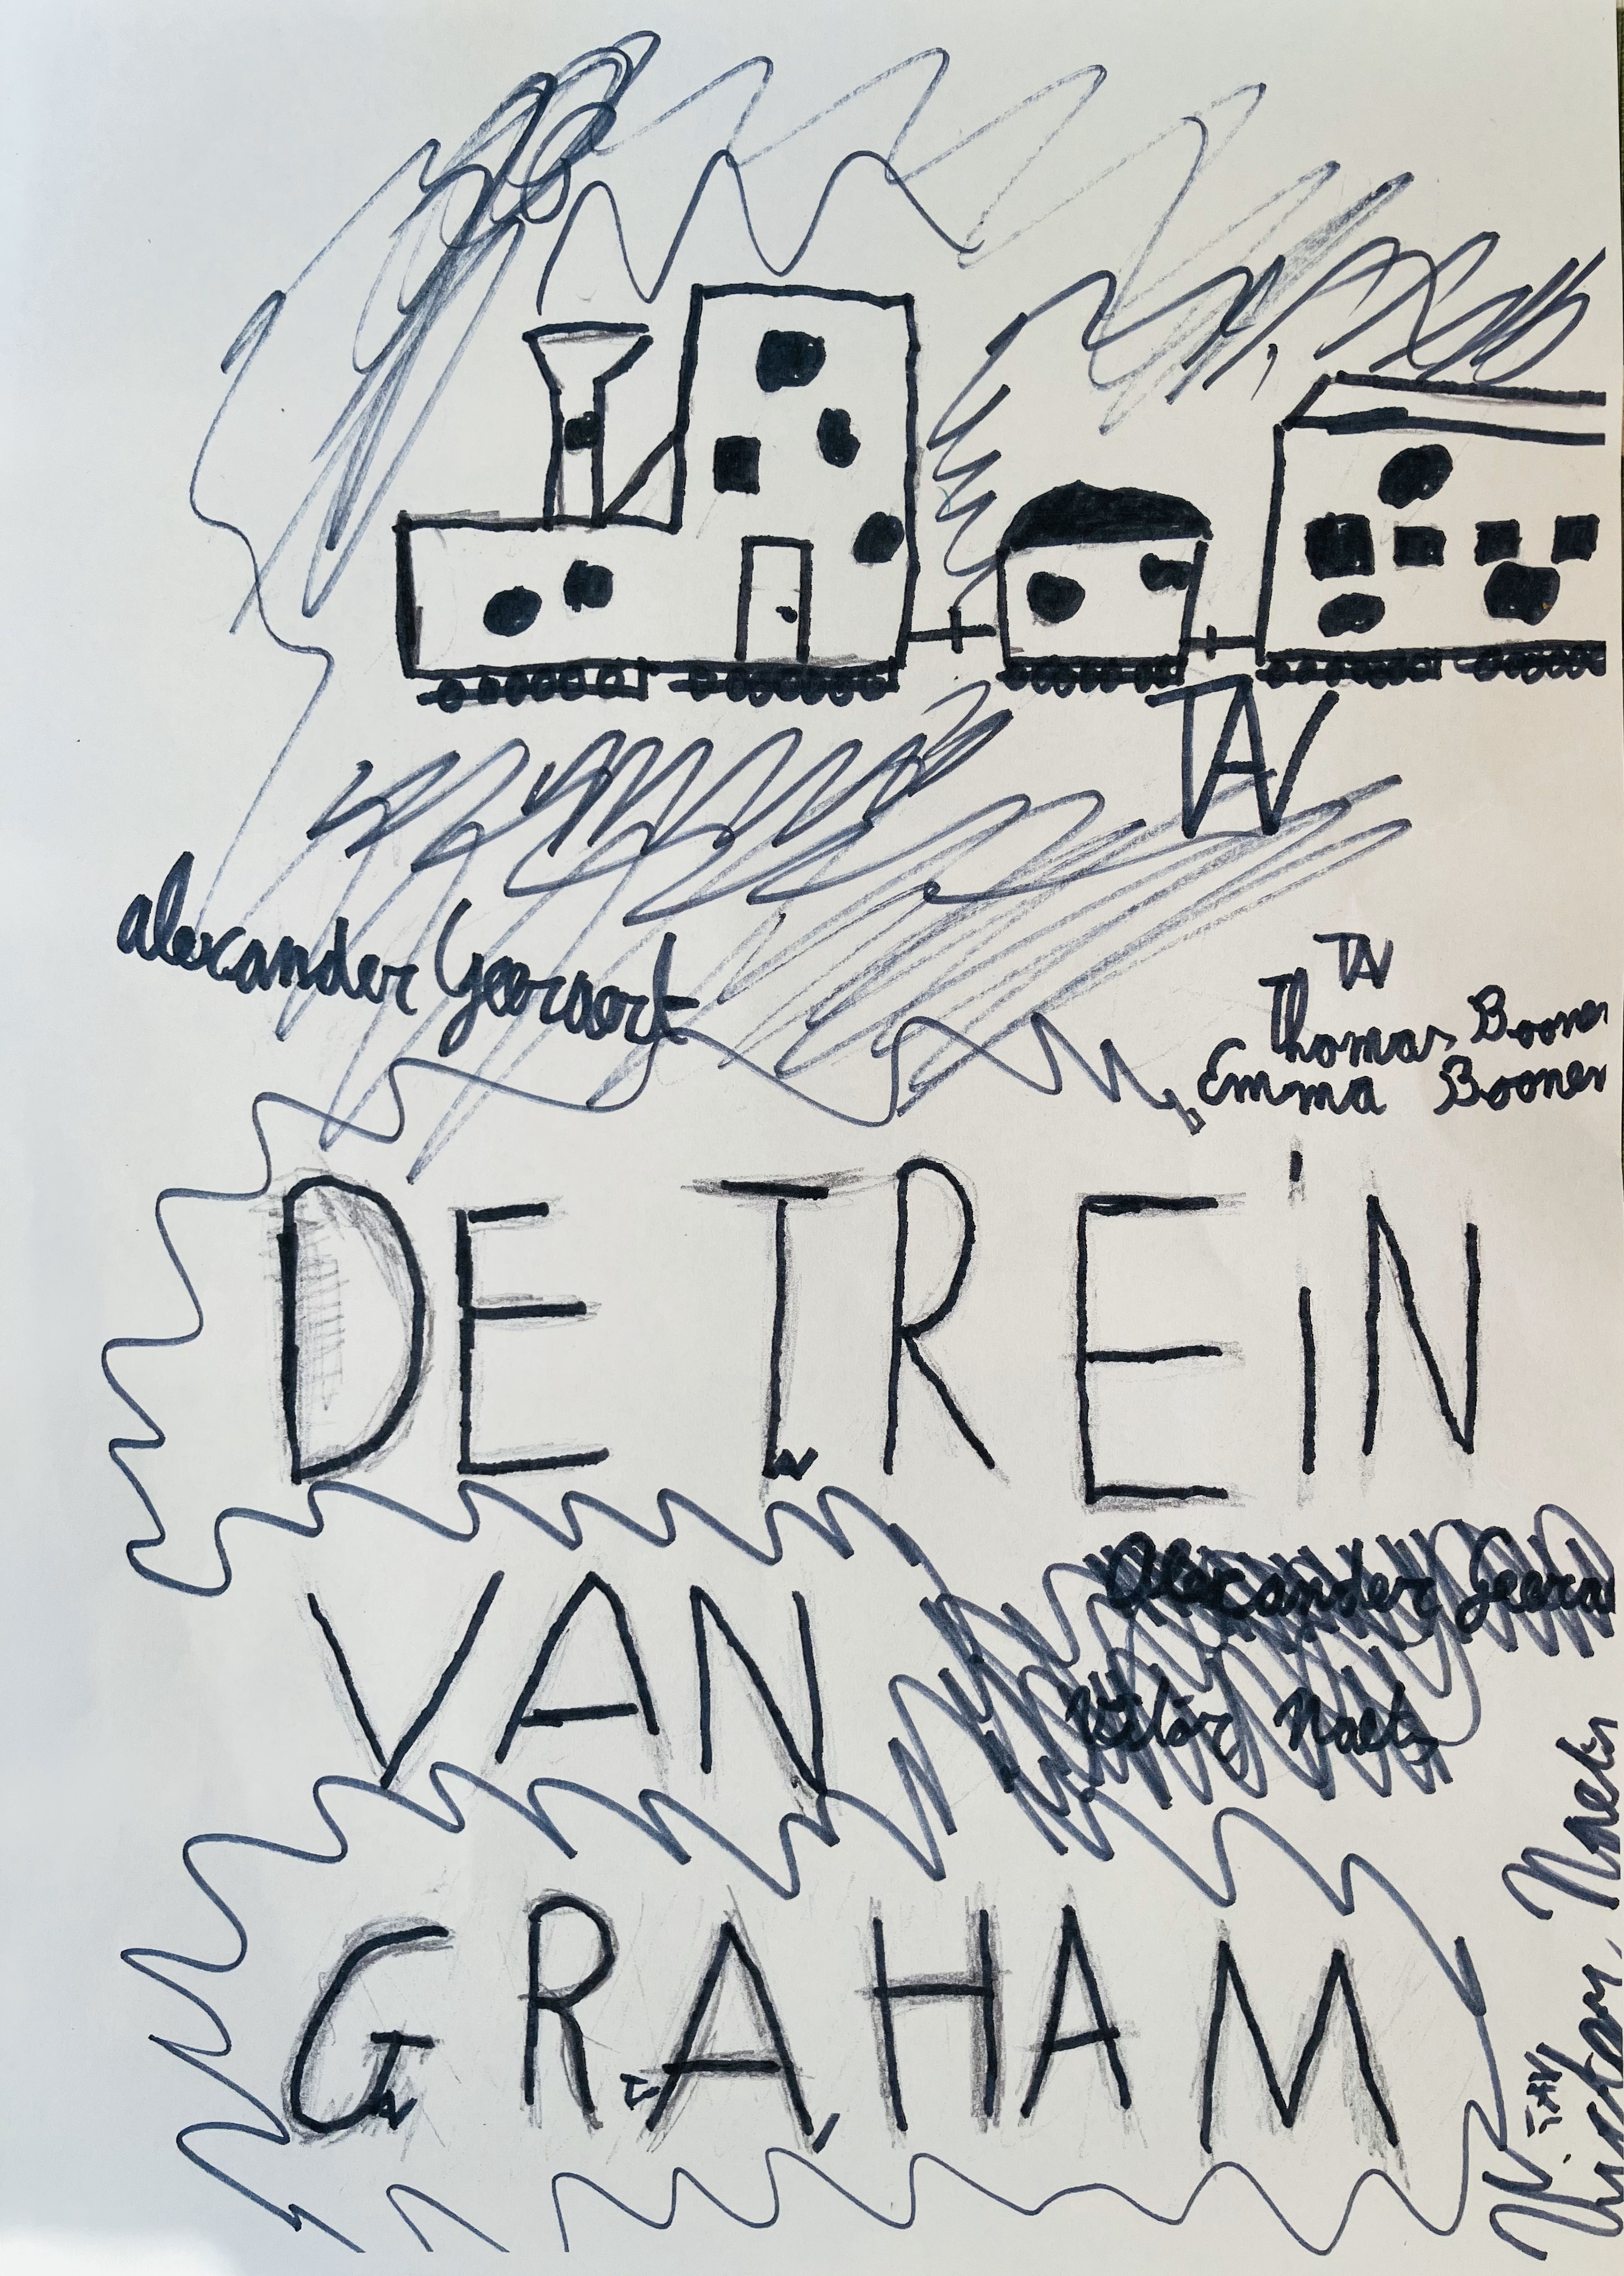 TAV
alexander Geeraert
TAV
Thomas Boone
Emma Boonen
DE TREiN
Alexander Geera
VAN
Victor Naets
GRAHAM
Victor Naets